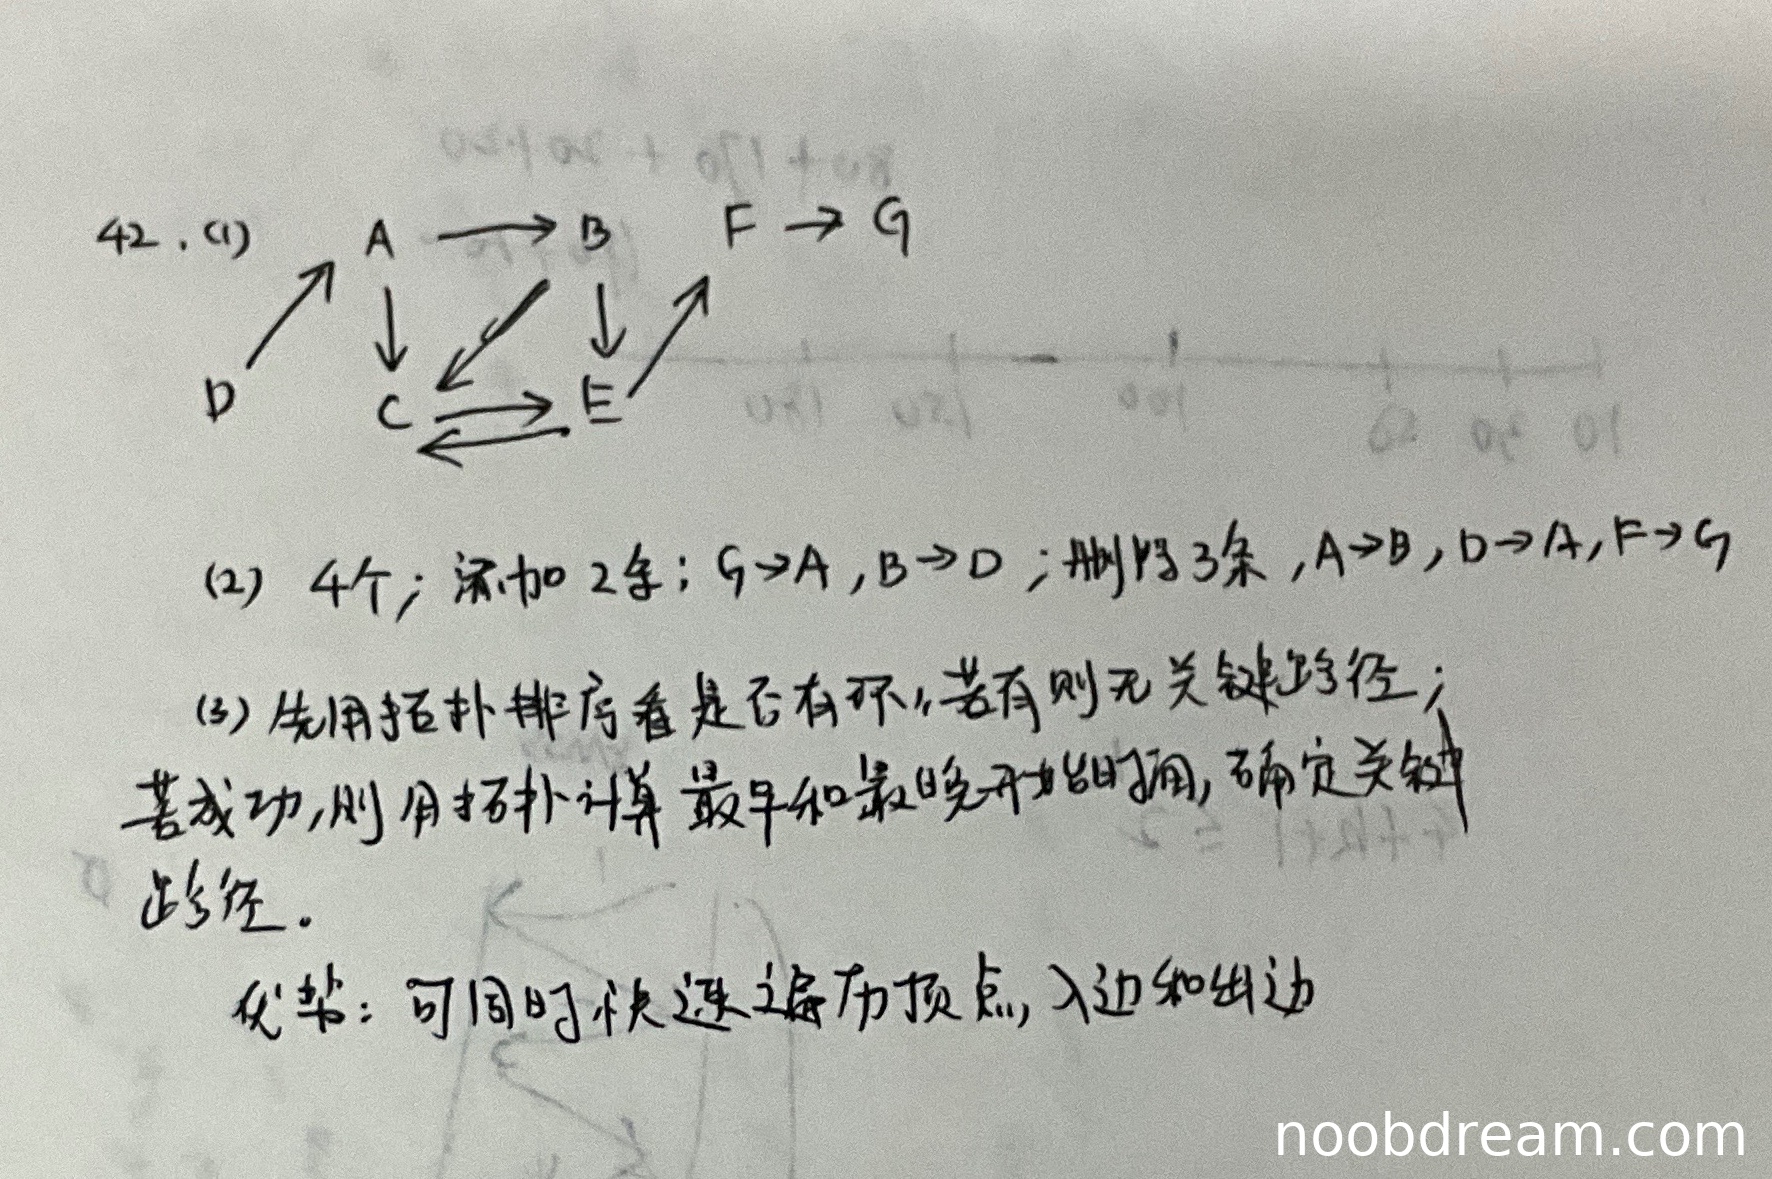 42. (1) A → B F → G
D C E
(2) 4个; 添加2条: G→A, B→D; 删除3条, A→B, D→A, F→G
(3) 先用拓扑排序看是否有环,若有则无关键路径;
若成功,则用拓扑计算最早和最晚开始时间,确定关键
路径.
优势: 可同时快速遍历顶点,入边和出边
noobdream.com